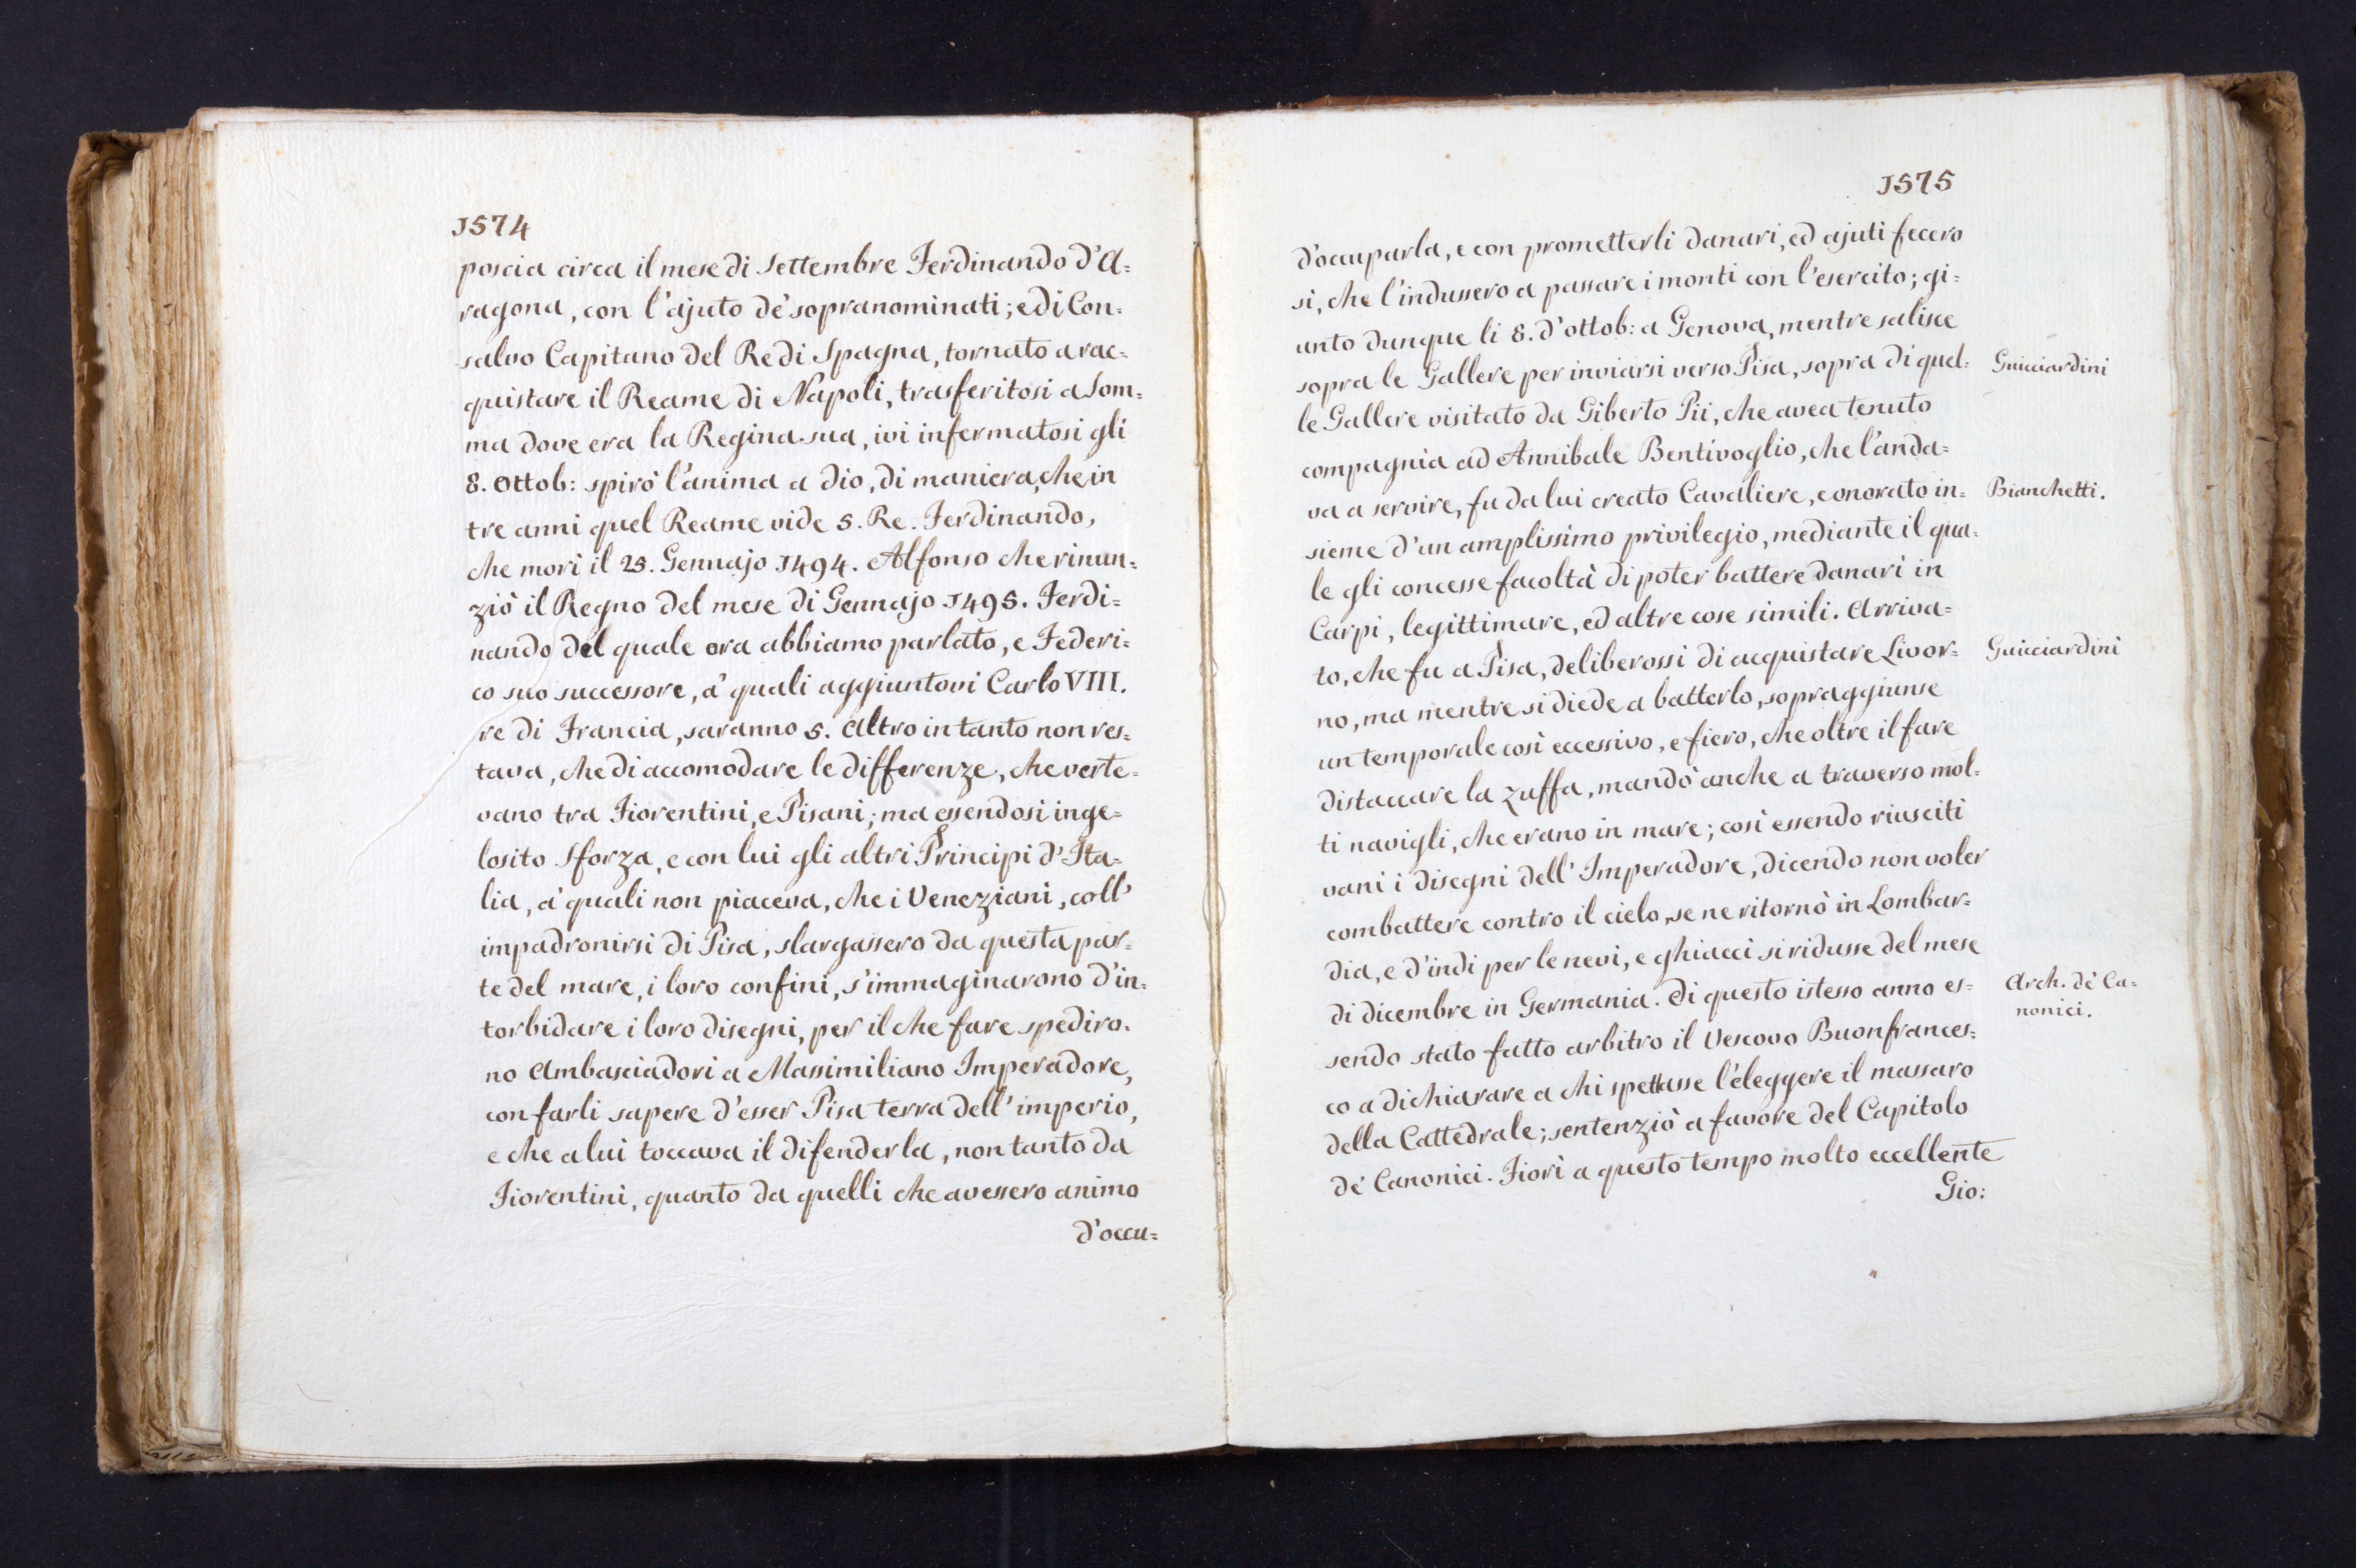 1574
poscia circa il mese di Settembre Ferdinando d'A=
ragona, con l'ajuto de' sopranominati; e di Con=
salvo Capitano del Re di Spagna, tornato a rac=
quistare il Reame di Napoli, trasferitosi a Som=
ma dove era la Regina sua, ivi infermatosi gli
8. Ottob: spirò l'anima a Dio, di maniera, che in
tre anni quel Reame vide 5. Re. Ferdinando,
che morì il 25. Gennajo 1494. Alfonso che rinun=
ziò il Regno del mese di Gennajo 1495. Ferdi=
nando del quale ora abbiamo parlato, e Federi=
co suo successore, a' quali aggiuntovi Carlo VIII.
re di Francia, saranno 5. Altro in tanto non res=
tava, che di accomodare le differenze, che verte=
vano tra Fiorentini, e Pisani; ma essendosi inge=
losito Sforza, e con lui gli altri Principi d'Ita=
lia, a' quali non piaceva, che i Veneziani, coll'
impadronirsi di Pisa, slargassero da questa par=
te del mare, i loro confini, s'immaginarono d'in=
torbidare i loro disegni, per il che fare spediro=
no Ambasciadori a Massimiliano Imperadore,
con farli sapere d'esser Pisa terra dell'imperio,
e che a lui toccava il difenderla, non tanto da
Fiorentini, quanto da quelli che avessero animo
d'occu=
1575
d'occuparla, e con prometterli danari, ed ajuti fecero
sì, che l'indussero a passare i monti con l'esercito; gi=
unto dunque li 8. d'ottob: a Genova, mentre salisce
sopra le Gallere per inviarsi verso Pisa, sopra di quel=
Guicciardini
le Gallere visitato da Giberto Pii, che avea tenuto
compagnia ad Annibale Bentivoglio, che l'anda=
va a servire, fu da lui creato Cavaliere, e onorato in=
Bianchetti.
sieme d'un amplissimo privilegio, mediante il qua=
le gli concesse facoltà di poter battere danari in
Carpi, legittimare, ed altre cose simili. Arriva=
to, che fu a Pisa, deliberossi di acquistare Livor=
Guicciardini
no, ma mentre si diede a batterlo, sopraggiunse
un temporale così eccessivo, e fiero, che oltre il fare
distaccare la zuffa, mandò anche a traverso mol=
ti navigli, che erano in mare; così essendo riusciti
vani i disegni dell'Imperadore, dicendo non voler
combattere contro il cielo, se ne ritornò in Lombar=
dia, e d'indi per le nevi, e ghiacci si ridusse del mese
di dicembre in Germania. Di questo istesso anno es=
Arch. de' Ca=
nonici.
sendo stato fatto arbitro il Vescovo Buonfrances=
co a dichiarare a chi spettasse l'eleggere il massaro
della Cattedrale; sentenziò a favore del Capitolo
de' Canonici. Fiorì a questo tempo molto eccellente
Gio: